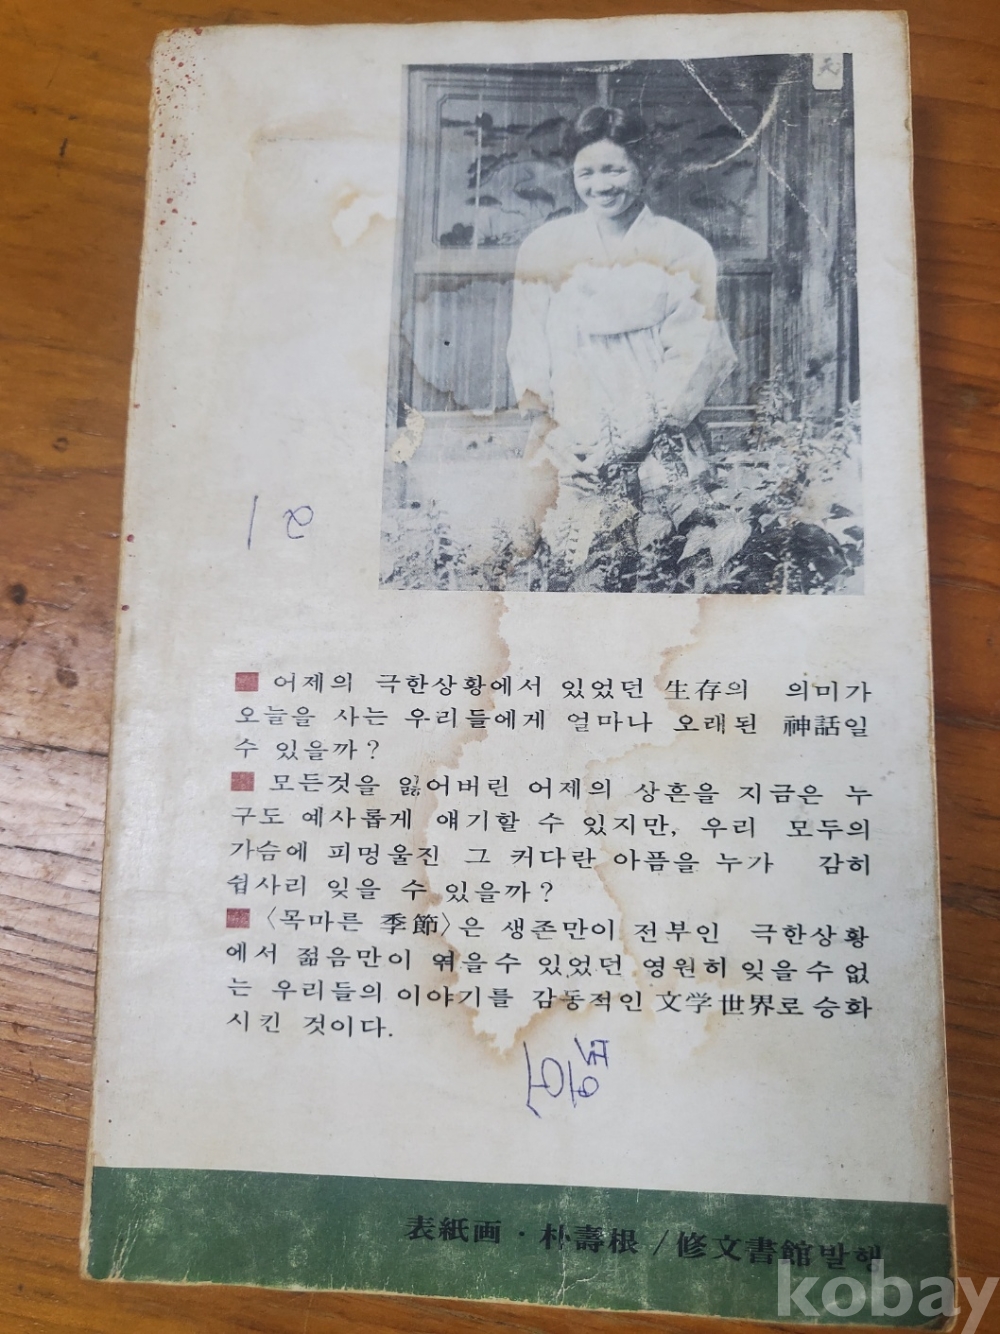 天
■ 어제의 극한상황에서 있었던 生存의 의미가
오늘을 사는 우리들에게 얼마나 오래된 神話일
수 있을까?
■ 모든것을 잃어버린 어제의 상흔을 지금은 누
구도 예사롭게 얘기할 수 있지만, 우리 모두의
가슴에 피멍울진 그 커다란 아픔을 누가 감히
쉽사리 잊을 수 있을까?
■ 〈목마른 季節〉은 생존만이 전부인 극한상황
에서 젊음만이 엮을수 있었던 영원히 잊을수 없
는 우리들의 이야기를 감동적인 文学 世界로 승화
시킨 것이다.
表紙画·朴壽根/修文書館발행
kobay